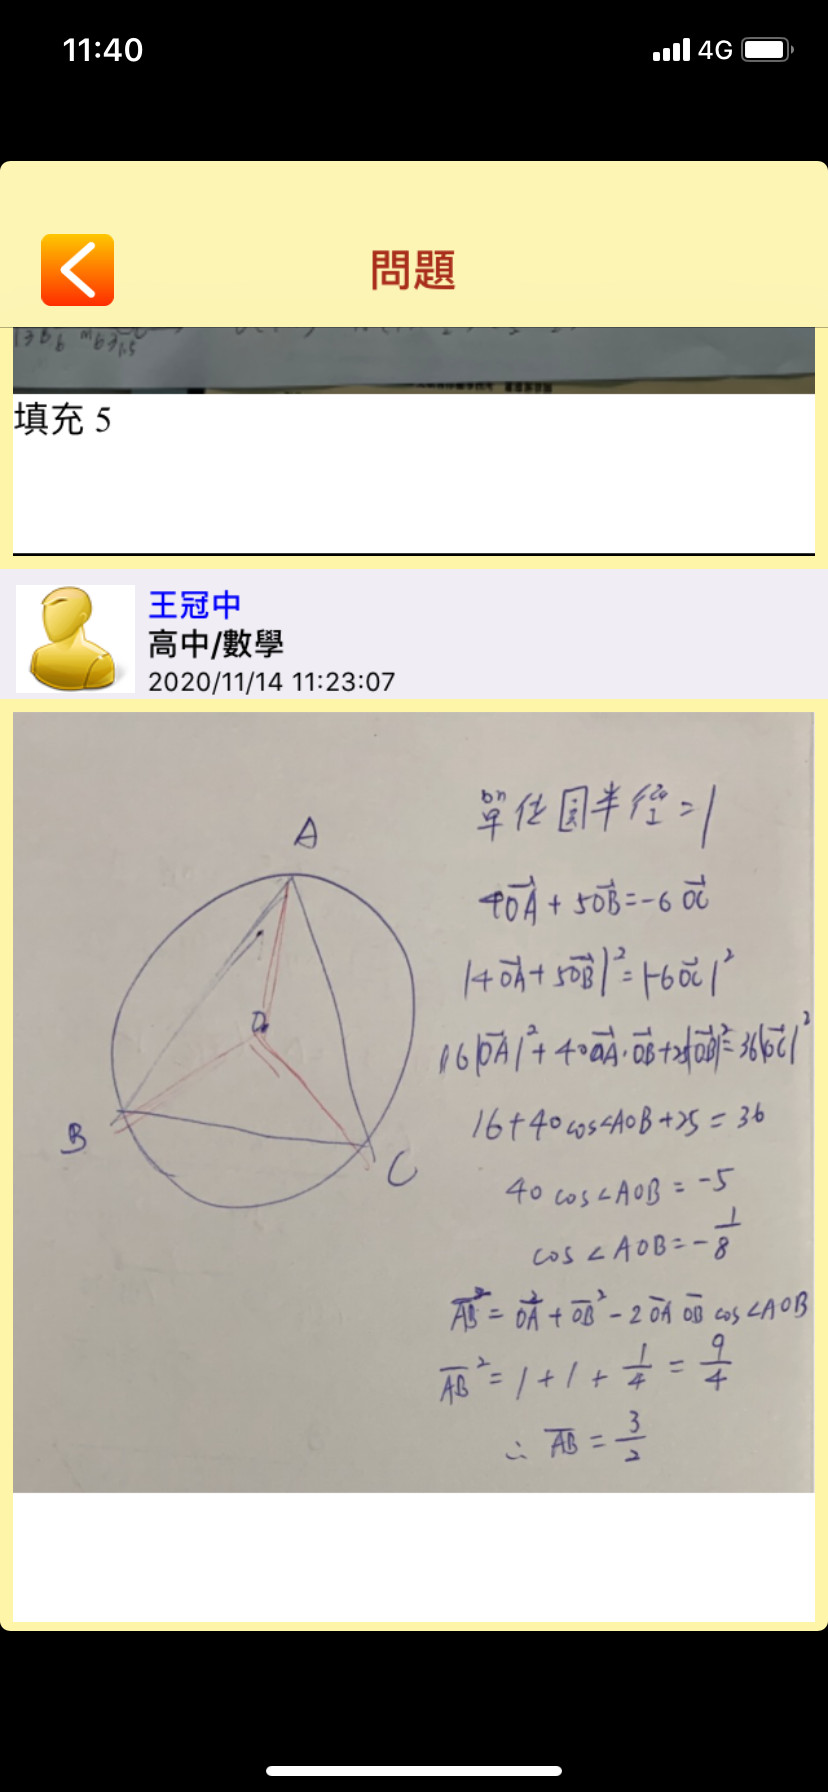 11:40
4G
問題
填充 5
王冠中
高中/數學
2020/11/14 11:23:07
A
O
B
C
單位圓半徑=1
4OA⃗ + 5OB⃗ = -6 OC⃗
|4OA⃗ + 5OB⃗|² = |-6OC⃗|²
16|OA⃗|² + 40OA⃗·OB⃗ + 25|OB⃗|² = 36|OC⃗|²
16+40cos∠AOB+25 = 36
40 cos∠AOB = -5
cos∠AOB = -1/8
A̅B̅² = O̅A̅² + O̅B̅² - 2 O̅A̅ O̅B̅ cos∠AOB
A̅B̅² = 1 + 1 + 1/4 = 9/4
∴ A̅B̅ = 3/2